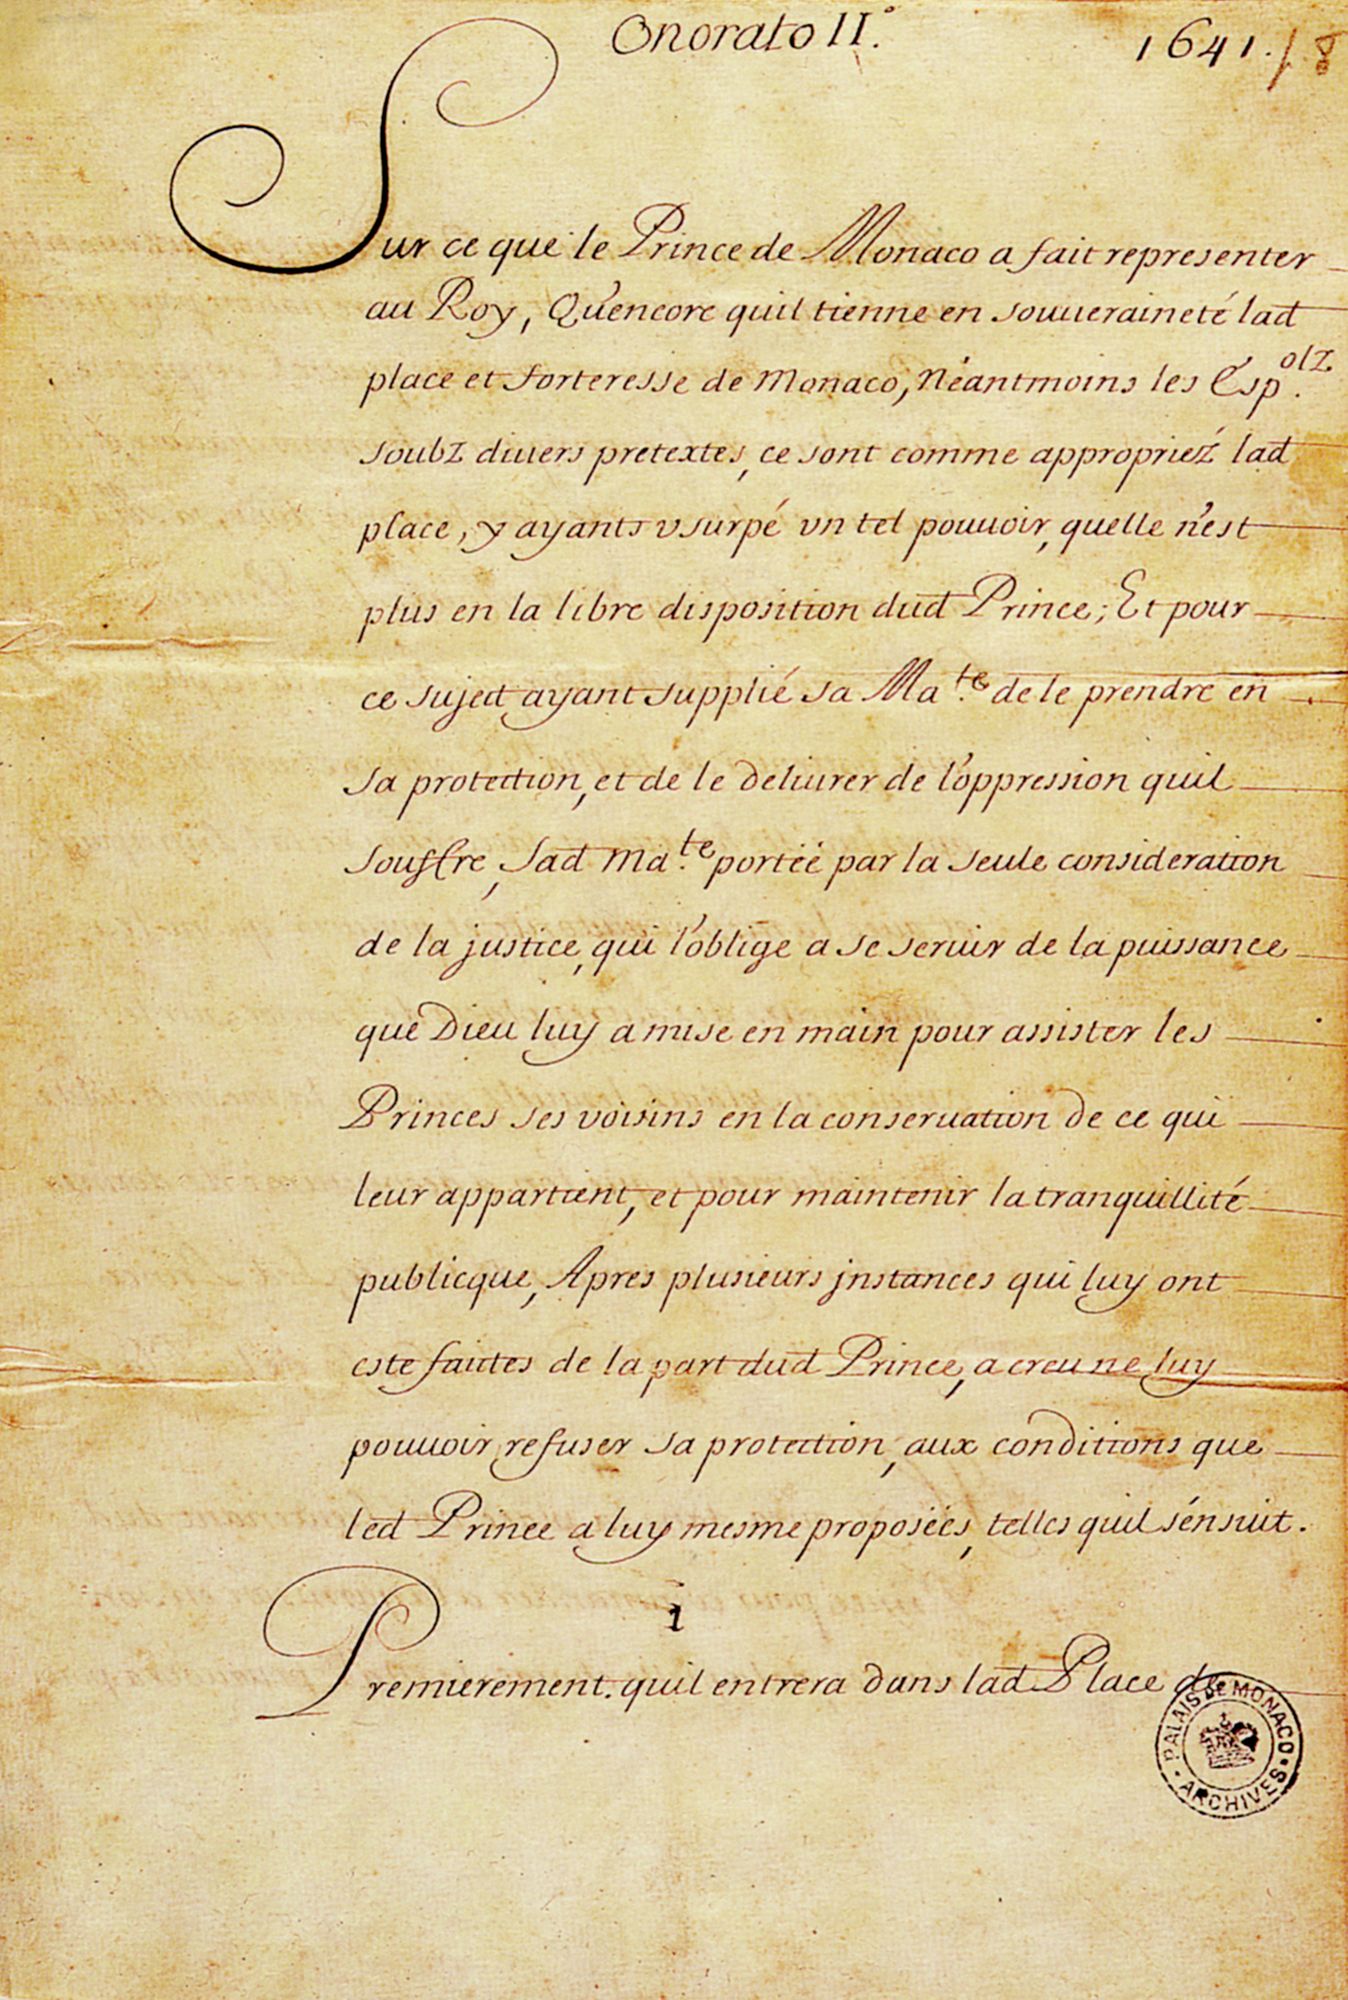 Onorato II.°
1641. f. 8
Sur ce que le Prince de Monaco a fait representer
au Roy, Qu'encore quil tienne en souueraineté lad
place et forteresse de Monaco, Néantmoins les Esp.olz
soubz diuers pretextes, ce sont comme appropriéz lad
place, y ayants vsurpé vn tel pouuoir, quelle n'est
plus en la libre disposition dud Prince; Et pour
ce suject ayant supplié sa Ma.te de le prendre en
sa protection, et de le deliurer de l'oppression quil
souffre, Sad Ma.te portéé par la seule consideration
de la justice, qui l'oblige a se seruir de la puissance
que Dieu luy a mise en main pour assister les
Princes ses voisins en la conseruation de ce qui
leur appartient, et pour maintenir la tranquillité
publicque, Apres plusieurs jnstances qui luy ont
este faittes de la part dud Prince, a creu ne luy
pouuoir refuser sa protection, aux conditions que
led Prince a luy mesme proposéés, telles quil s'énsuit.
1
Premierement. quil entrera dans lad Place de
PALAIS DE MONACO
ARCHIVES